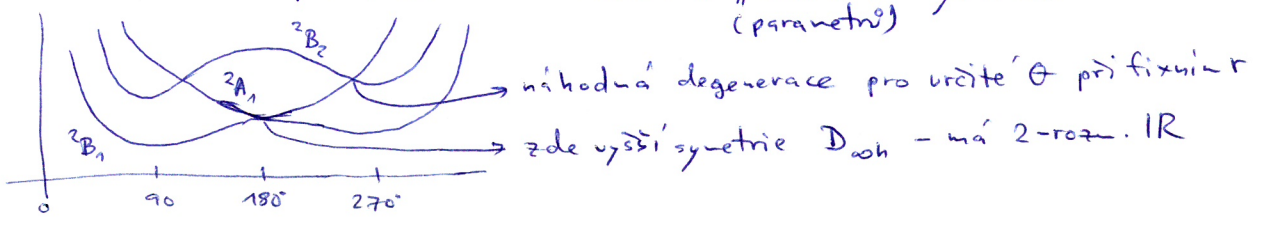 (parametrů)
²B₂
náhodná degenerace pro určité θ při fixním r
²A₁
²B₁
zde vyšší symetrie D∞h – má 2-rozm. IR
0 90 180° 270°